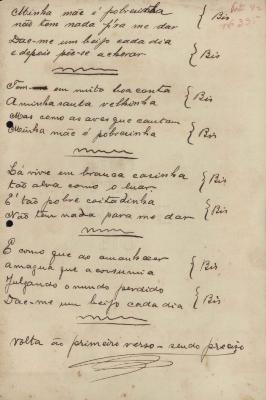 Minha mãe é pobresinha } Bis
não tem nada p'ra me dar
Dae-me um beijo cada dia } Bis
e depois põe-se a chorar
em muito boa conta } Bis
A minha santa velhinha
Mas como as aves que cantam } Bis
Minha mãe é pobresinha
Lá vive em branca casinha } Bis
tão alva como o luar
E' tão pobre coitadinha } Bis
Não tem nada para me dar
E como que ao amanhecer } Bis
a magua que a consumia
Julgando o mundo perdido } Bis
Dae-me um beijo cada dia
Volta ao primeiro verso - sendo preciso